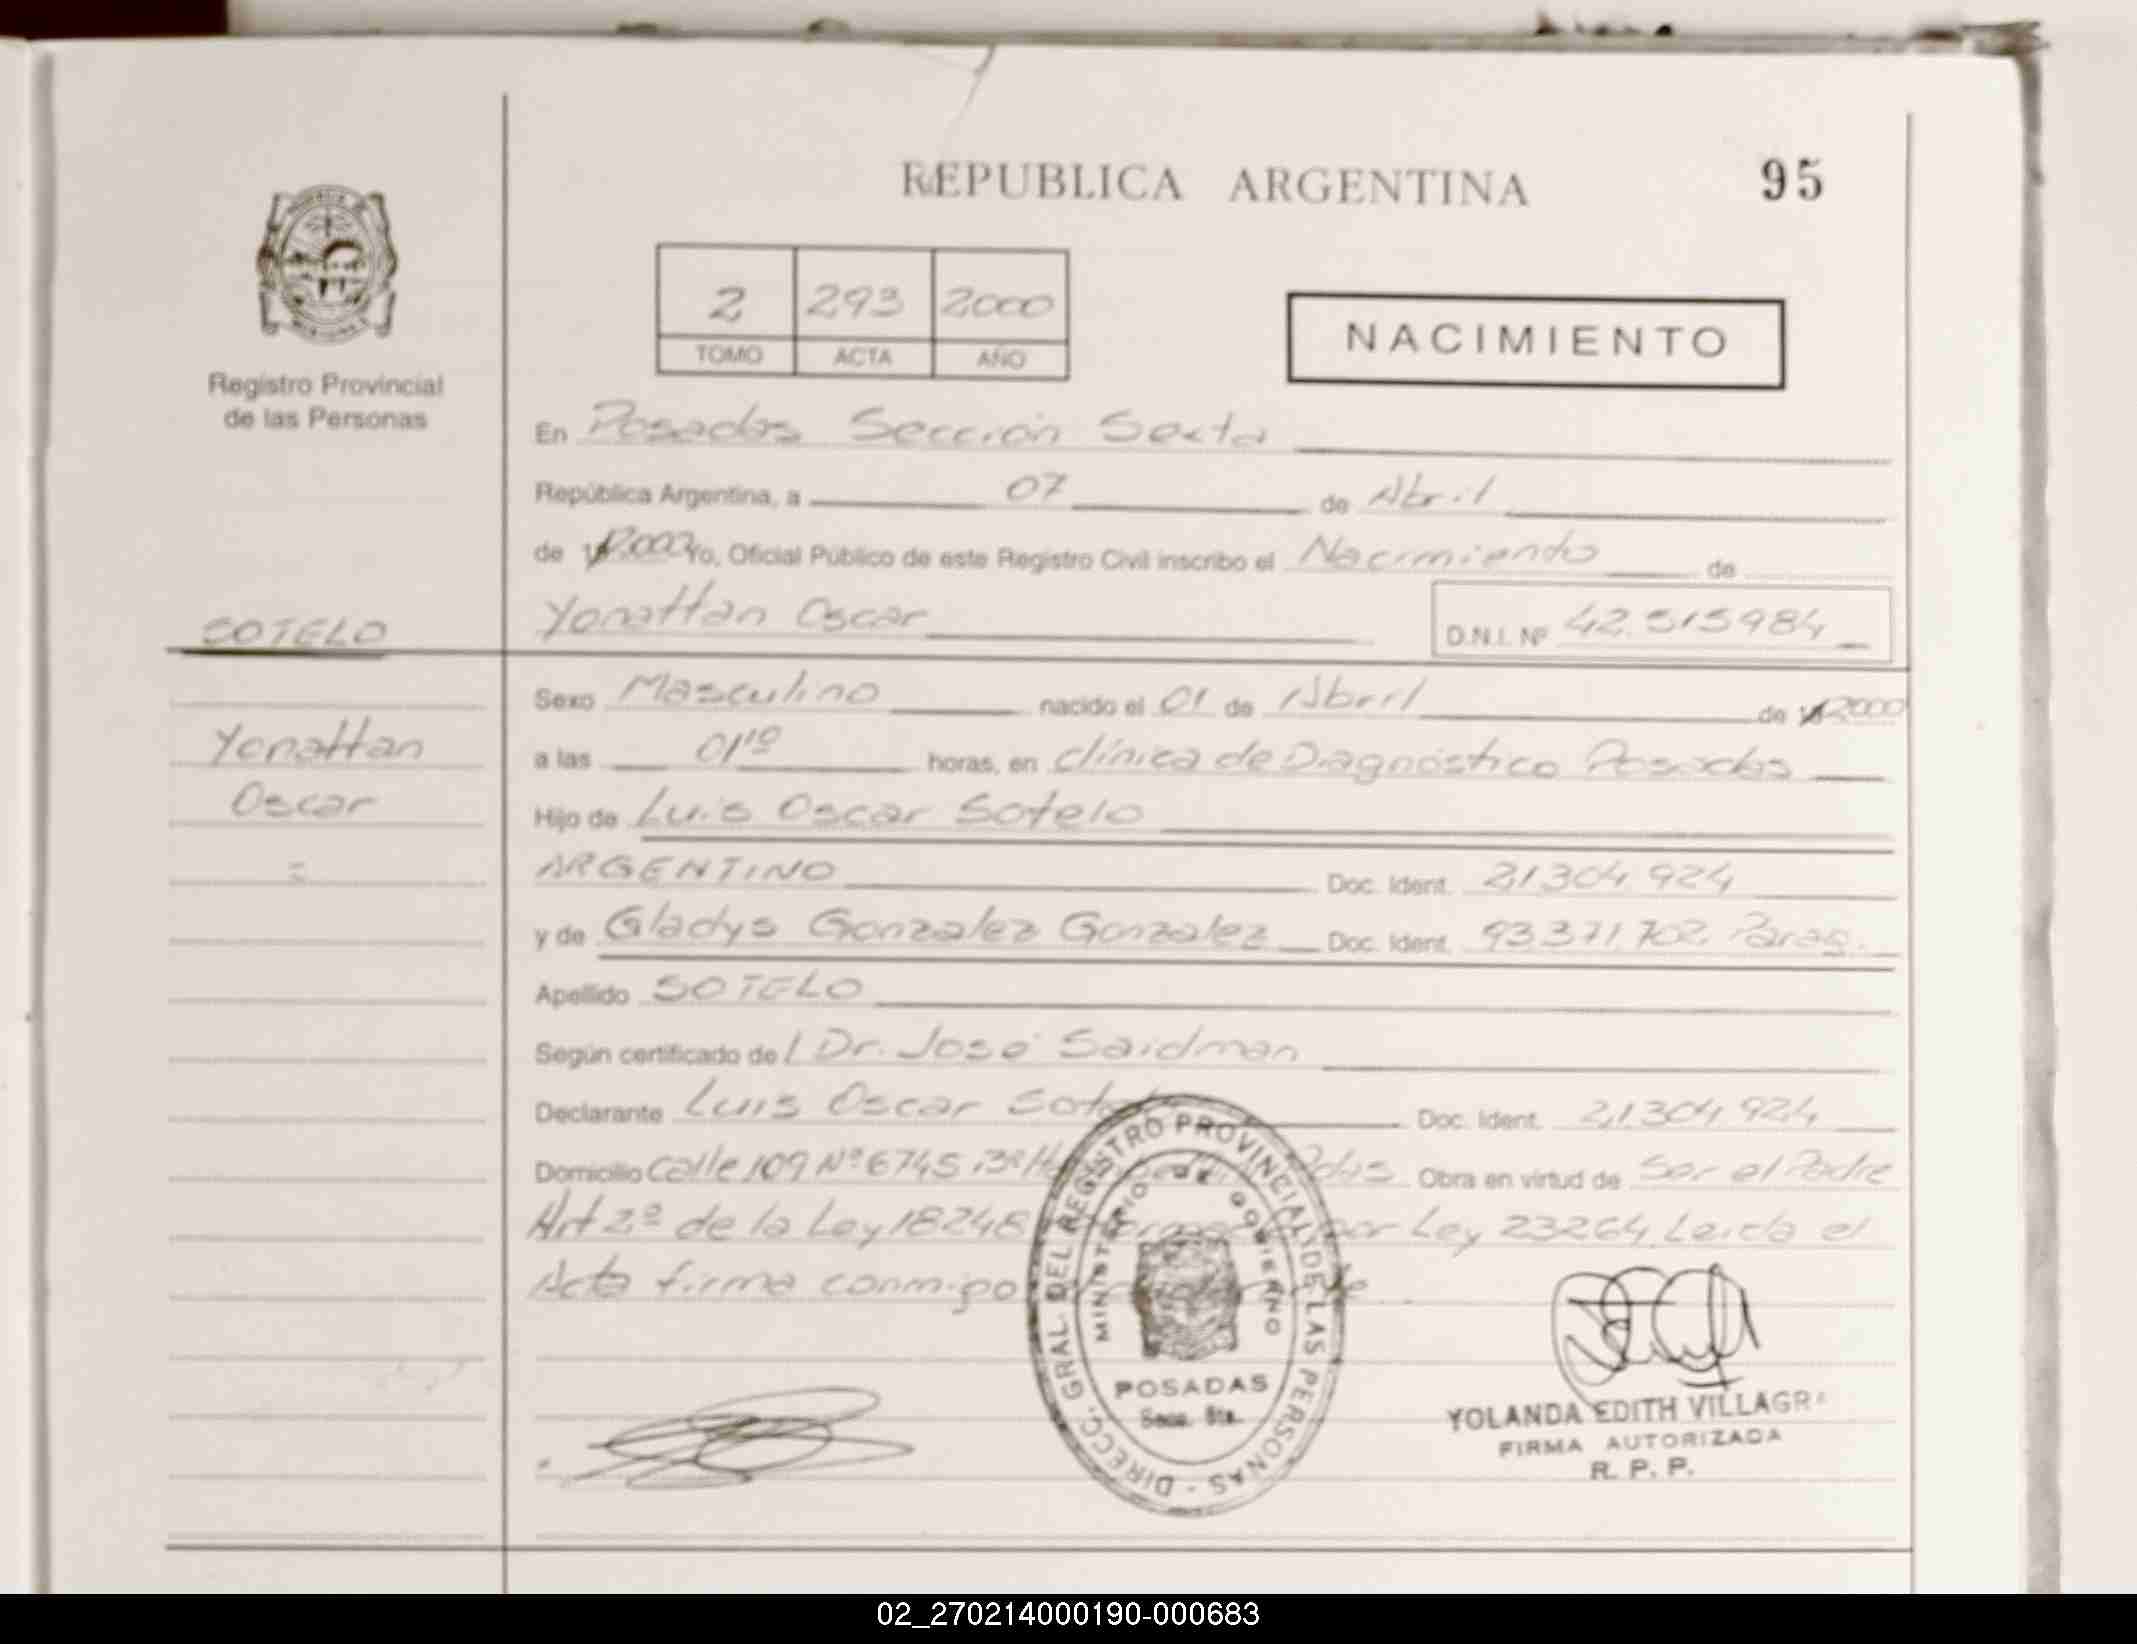 REPUBLICA ARGENTINA
95
2 293 2000
TOMO ACTA AÑO
NACIMIENTO
Registro Provincial
de las Personas
En Posadas Sección Sexta
República Argentina, a 07 de Abril
de 2.000 Yo, Oficial Público de este Registro Civil inscribo el Nacimiento de
SOTELO
Yonattan Oscar
D.N.I. Nº 42.515984
Sexo Masculino nacido el 01 de Abril de 2000
Yonattan
a las 01¹⁰ horas, en Clínica de Diagnóstico Posadas
Oscar
Hijo de Luis Oscar Sotelo
ARGENTINO Doc. Ident. 21304924
y de Gladys Gonzalez Gonzalez Doc. Ident. 93371702 Parag.
Apellido SOTELO
Según certificado de Dr. José Saidman
Declarante Luis Oscar Sotelo Doc. Ident. 21.304.924
Domicilio Calle 109 Nº 6745 Obra en virtud de Ser el Padre
Art 2º de la Ley 18248 por Ley 23264 Leida el
Acta firma conmigo
DIRECC. GRAL. DEL REGISTRO PROVINCIAL DE LAS PERSONAS -
MINISTERIO DE GOBIERNO
POSADAS
Secc. 6ta.
YOLANDA EDITH VILLAGRA
FIRMA AUTORIZADA
R. P. P.
02_270214000190-000683